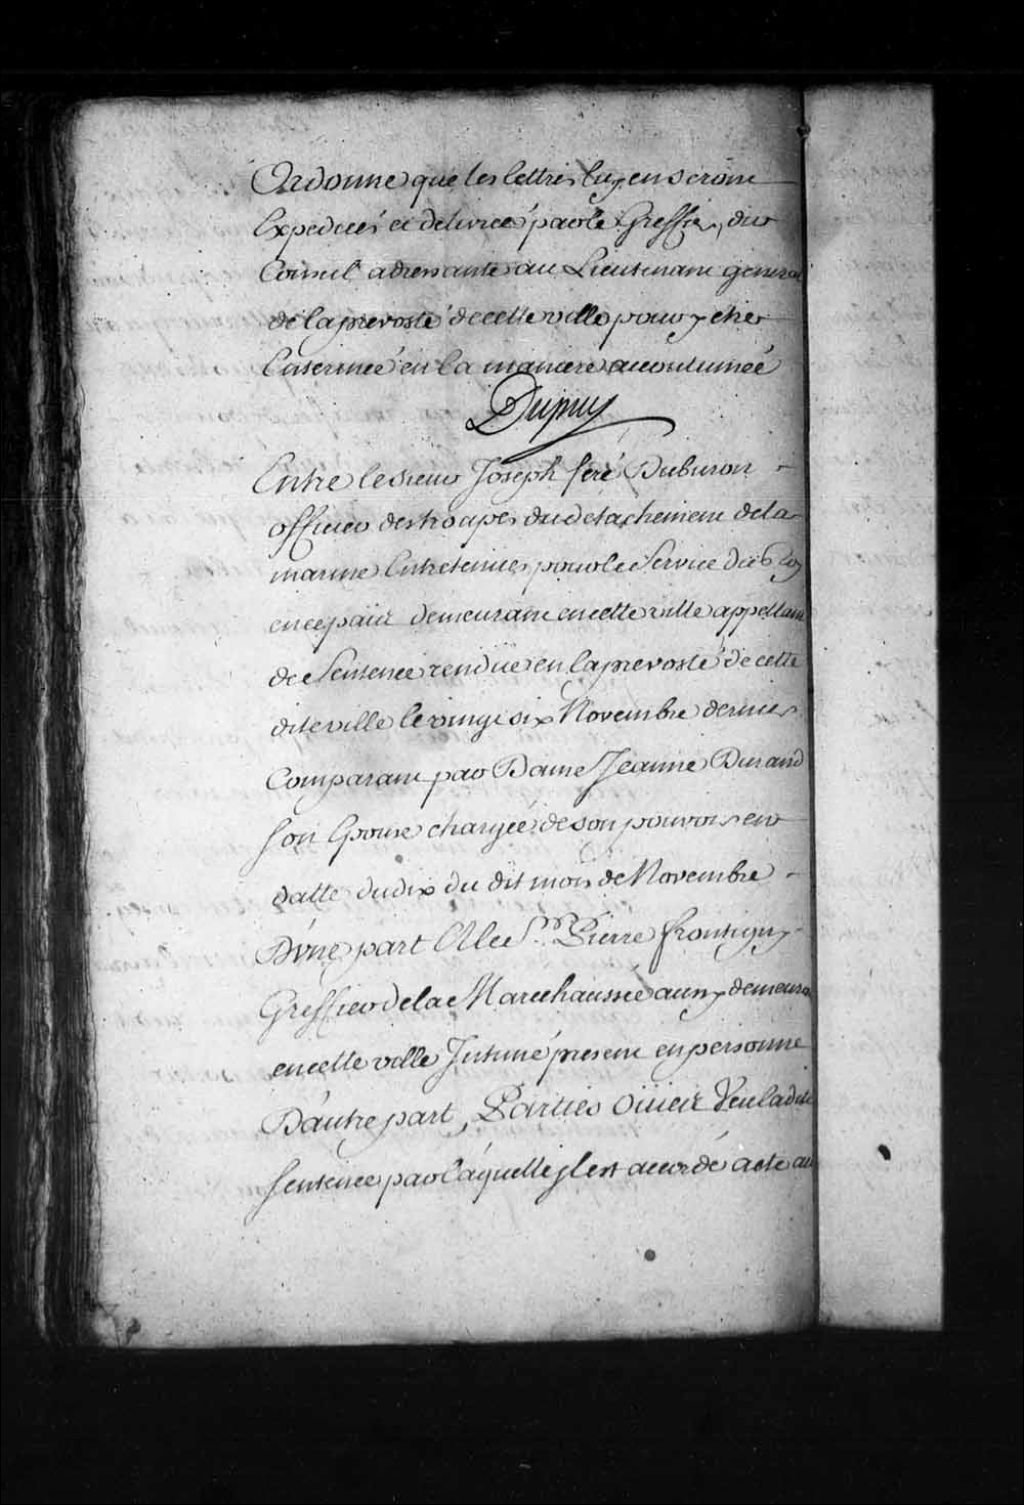 Ordonne que les lettres luy en seront
Expediées et delivrées par le Greffier du
Conseil adressantes au Lieutenant general
de la prevosté de cette ville pour y estre
Enterinée en la maniere accoutumée
Dupuy
Entre le sieur Joseph feré Duburon
officier des troupes du detachement de la
marine Entretenues pour le Service du Roy
en ce païs demeurant en cette ville appellant
de Sentence rendüe en la prevosté de cette
dite ville le vingt six Novembre dernier
Comparant par Dame Jeanne Durand
son Epouse chargée de son pouvoir en
datte du dix du dit mois de Novembre
D'une part Et le Sr. Pierre frontigny
Greffier de la Marechaussée aussy demeurant
en cette ville Intimé present en personne
D'autre part, Parties oüiës Veu la dite
sentence par laquelle il est accordé acte au